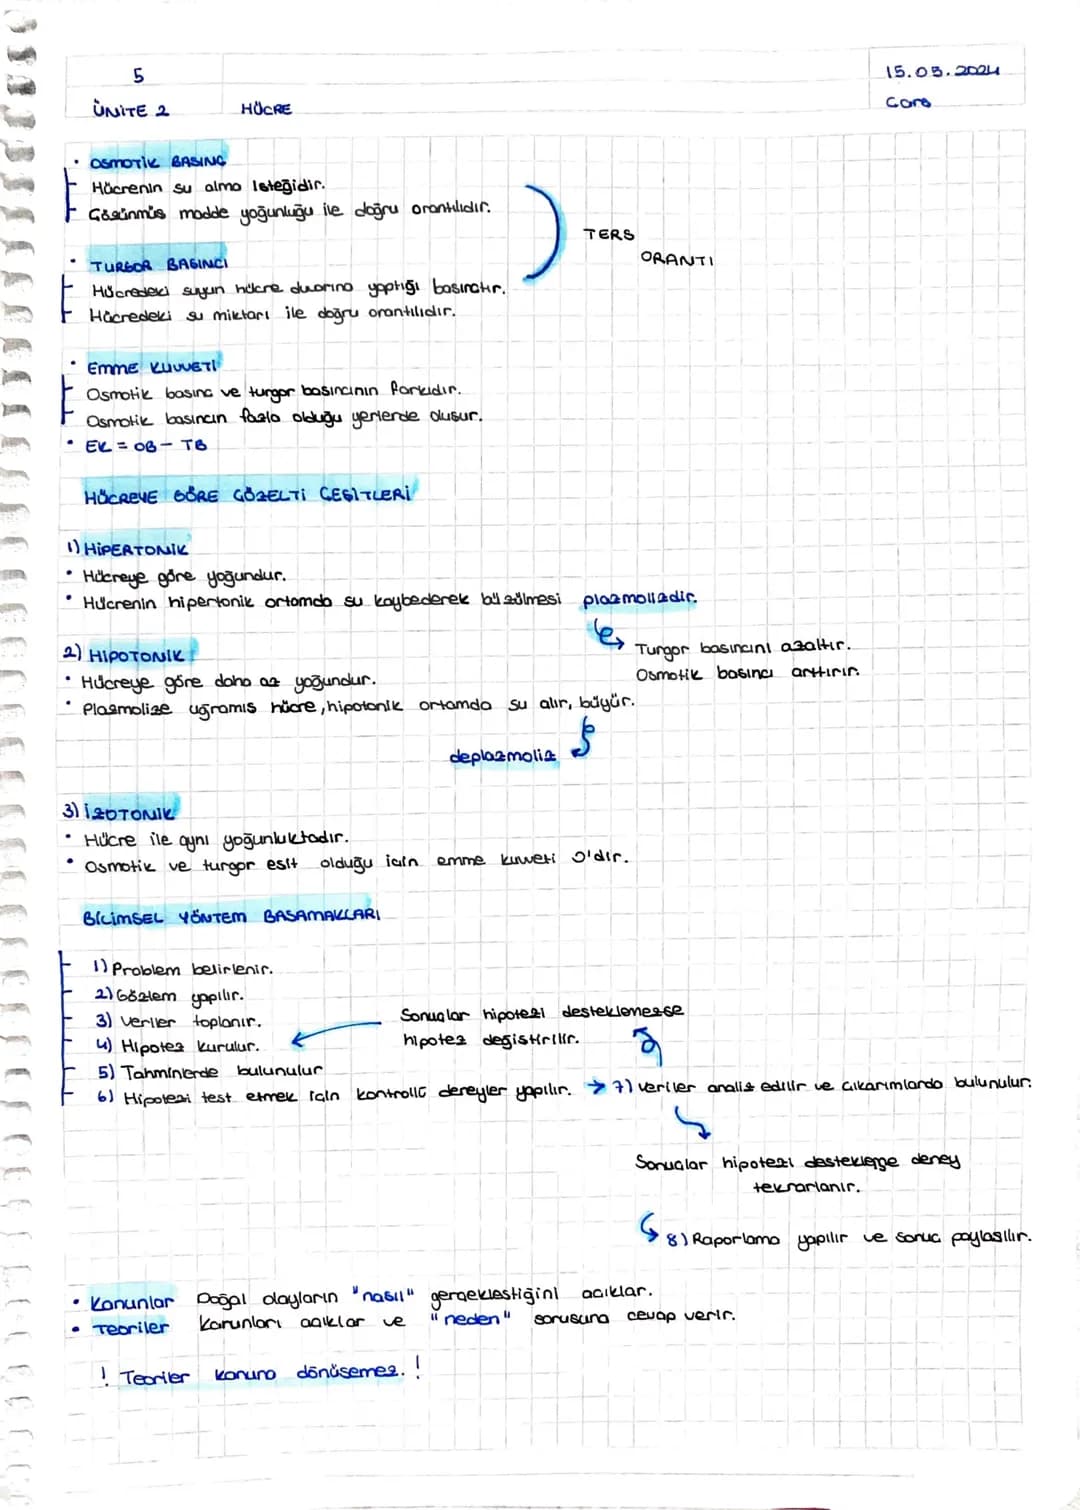 5
15.05.2024
ÜNİTE 2 HÜCRE
Çarş
• OSMOTİK BASINÇ
Hücrenin su alma isteğidir.
Çözünmüş madde yoğunluğu ile doğru orantılıdır.
TERS
ORANTI
• TURGOR BASINCI
Hücredeki suyun hücre duvarına yaptığı basınçtır.
Hücredeki su miktarı ile doğru orantılıdır.
• EMME KUVVETİ
Osmotik basınç ve turgor basıncının farkıdır.
Osmotik basıncın fazla olduğu yerlerde oluşur.
• EK = OB - TB
HÜCREYE GÖRE ÇÖZELTİ ÇEŞİTLERİ
1) HİPERTONİK
• Hücreye göre yoğundur.
• Hücrenin hipertonik ortamda su kaybederek büzülmesi plazmolizdir.
Turgor basıncını azaltır.
Osmotik basıncı arttırır.
2) HİPOTONİK
• Hücreye göre daha az yoğundur.
• Plazmolize uğramış hücre, hipotonik ortamda su alır, büyür.
deplazmoliz
3) İZOTONİK
• Hücre ile aynı yoğunluktadır.
• Osmotik ve turgor eşit olduğu için emme kuvveti 0'dır.
BİLİMSEL YÖNTEM BASAMAKLARI
1) Problem belirlenir.
2) Gözlem yapılır.
3) Veriler toplanır.
4) Hipotez kurulur.
5) Tahminlerde bulunulur
6) Hipotezi test etmek için kontrollü deneyler yapılır. → 7) Veriler analiz edilir ve çıkarımlarda bulunulur.
Sonuçlar hipotezi desteklemezse
hipotez değiştirilir.
Sonuçlar hipotezi destekleyse deney
tekrarlanır.
8) Raporlama yapılır ve sonuç paylaşılır.
• Kanunlar Doğal olayların "nasıl" gerçekleştiğini açıklar.
• Teoriler Kanunları açıklar ve "neden" sorusuna cevap verir.
! Teoriler kanuna dönüşemez. !